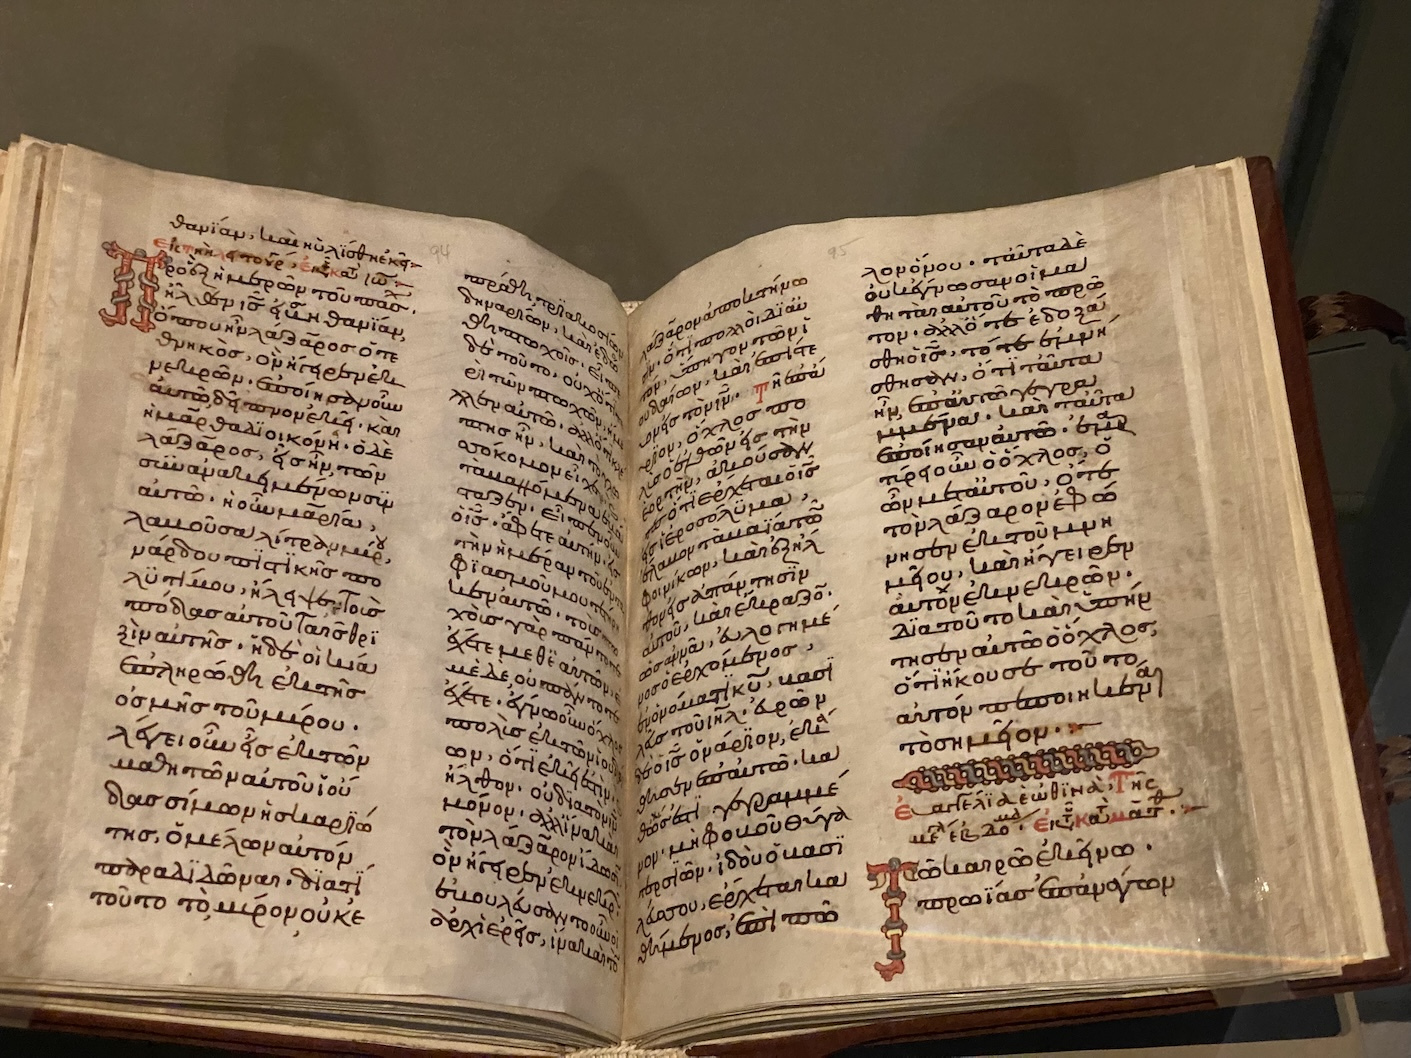 θανϊάν, καὶ ηὐλίσθη ἐκεῖ
Πρὸ ἓξ ἡμερῶν τοῦ πάσχ.
ἦλθεν ὁ ἰς εἰς βηθανϊάν,
ὅπου ἦν λάζαρος ὁ τε
θνηκὼς, ὃν ἤγειρεν ἐκ
νεκρῶν. ἐποίησαν οὖν
αὐτῶ δεῖπνον ἐκεῖ. καὶ
ἡ μάρθα διηκόνει. ὁ δὲ
λάζαρος, εἷς ἦν, τῶν
συνανακειμένων σὺν
αὐτῶ. ἡ οὖν μαρία,
λαβοῦσα λίτραν μύρου
νάρδου πιστικῆς πο
λυτίμου, ἤλειψε τοὺς
πόδας αὐτοῦ ταῖς θρι
ξὶν αὐτῆς. ἡ δὲ οἰκία
ἐπληρώθη ἐκ τῆς
ὀσμῆς τοῦ μύρου.
λέγει οὖν εἷς ἐκ τῶν
μαθητῶν αὐτοῦ ἰού
δας σίμων ἰσκαριώ
της, ὁ μέλλων αὐτὸν
παραδιδόναι. διατί
τοῦτο τὸ μύρον οὐκ ἐ
πράθη τριακοσίων
δηναρίων, καὶ ἐδό
θη πτωχοῖς. εἶπε
δὲ τοῦτο, οὐχ ὅτι πε
ρὶ τῶν πτωχῶν, ἔμε
λλεν αὐτῶ. ἀλλ' ὅτι κλέ
πτης ἦν, καὶ τὸ γλωσ
σόκομον εἶχε καὶ
τὰ βαλλόμενα ἐβάσ
ταζεν. εἶπεν οὖν
ὁ ἰς. ἄφες αὐτὴν, εἰς
τὴν ἡμέραν τοῦ ἐντα
φιασμοῦ μου τετήρη
κεν αὐτό. τοὺς πτω
χοὺς γὰρ πάντοτε
ἔχετε μεθ' ἑαυτῶν. ἐ
μὲ δὲ, οὐ πάντοτε
ἔχετε. ἔγνω οὖν ὄχλος
πολὺς ἐκ τῶν ἰουδαί
ων, ὅτι ἐκεῖ ἐστιν.
ἦλθον. οὐ διὰ τὸν ἰν
μόνον. ἀλλ' ἵνα καὶ
τὸν λάζαρον ἴδωσιν
ὃν ἤγειρεν ἐκ νεκρῶν
ἐβουλεύσαντο οὖν οἱ
ἀρχιερεῖς, ἵνα καὶ τὸν
λάζαρον ἀποκτείνω
σιν. ὅτι πολλοὶ δι' αὐ
τὸν, ὑπῆγον τῶν ἰ
ουδαίων, καὶ ἐπίστε
υον εἰς τὸν ἰν. Τῆ ἐπαύ
ριον, ὁ ὄχλος πο
λὺς ὁ ἐλθὼν εἰς τὴν
ἑορτὴν, ἀκούσαν
τες ὅτι ἔρχεται ὁ ἰς
εἰς ἱεροσόλυμα,
ἔλαβον τὰ βαΐα τῶν
φοινίκων, καὶ ἐξῆλ
θον εἰς ἀπάντησιν
αὐτοῦ, καὶ ἔκραζον.
ὡσαννὰ, εὐλογημέ
νος ὁ ἐρχόμενος,
ἐν ὀνόματι κυ, βασι
λεὺς τοῦ ιηλ. εὑρὼν
δὲ ὁ ἰς ὀνάριον, ἐκά
θισεν ἐπ' αὐτῶ. κα
θώς ἐστι γεγραμμέ
νον. μὴ φοβοῦ θύγα
τερ σιών. ἰδοὺ ὁ βασι
λεύς σου, ἔρχεται κα
θήμενος, ἐπὶ πῶ
λον ὄνου. ταῦτα δὲ
οὐκ ἔγνωσαν οἱ μα
θηταὶ αὐτοῦ τὸ πρῶ
τον. ἀλλ' ὅτε ἐδοξά
σθη ὁ ἰς, τότε ἐμνή
σθησαν, ὅτι ταῦτα
ἦν, ἐπ' αὐτῶ γεγρα
μμένα. καὶ ταῦτα
ἐποίησαν αὐτῶ. ἐμαρ
τύρει οὖν ὁ ὄχλος, ὁ
ὢν μετ' αὐτοῦ, ὅτε
τὸν λάζαρον ἐφώ
νησεν ἐκ τοῦ μνη
μείου, καὶ ἤγειρεν
αὐτὸν ἐκ νεκρῶν.
διὰ τοῦτο καὶ ὑπήν
τησεν αὐτῶ ὁ ὄχλος,
ὅτι ἤκουσε τοῦτο
αὐτὸν πεποιηκέναι
τὸ σημεῖον.
ἑωθινὰ. Τῆς
Τῶ καιρῶ ἐκείνω.
πρωΐας ἐπανάγων
94
95